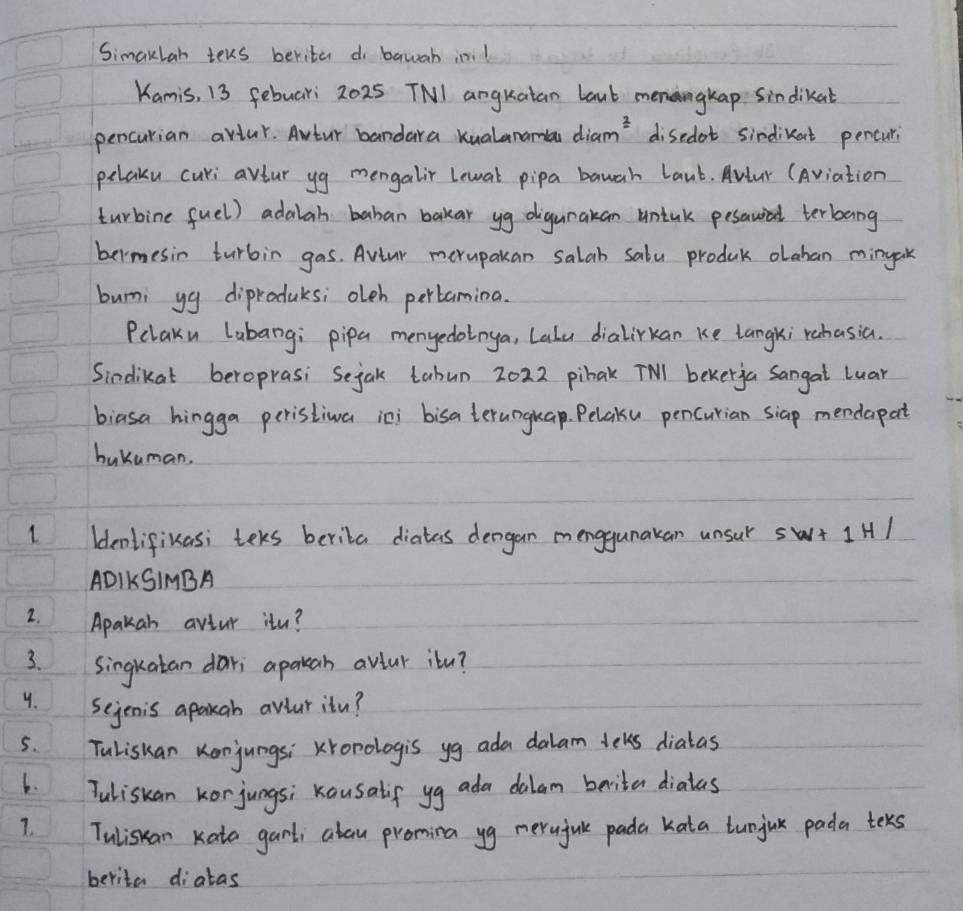 Simaklah teks berita di bawah ini!
Kamis, 13 febuari 2025 TNI angkatan laut menangkap sindikat
pencurian avtur. Avtur bandara kualanamu diam² disedot sindikat pencuri
pelaku curi avtur yg mengalir lewat pipa bawah laut. Avtur (Aviation
turbine fuel) adalah bahan bakar yg digunakan untuk pesawat terbang
bermesin turbin gas. Avtur merupakan salah satu produk olahan minyak
bumi yg diproduksi oleh pertamina.
Pelaku lubangi pipa menyedotnya, lalu dialirkan ke tangki rahasia.
Sindikat beroprasi sejak tahun 2022 pihak TNI bekerja sangat luar
biasa hingga peristiwa ini bisa terungkap. Pelaku pencurian siap mendapat
hukuman.
1. Identifikasi teks berita diatas dengan menggunakan unsur 5W+1H/
ADIKSIMBA
2. Apakah avtur itu?
3. singkatan dari apakah avtur itu?
4. sejenis apakah avtur itu?
5. Tuliskan konjungsi kronologis yg ada dalam teks diatas
6. Tuliskan konjungsi kausatif yg ada dalam berita diatas
7. Tuliskan kata ganti atau promina yg merujuk pada kata tunjuk pada teks
berita diatas